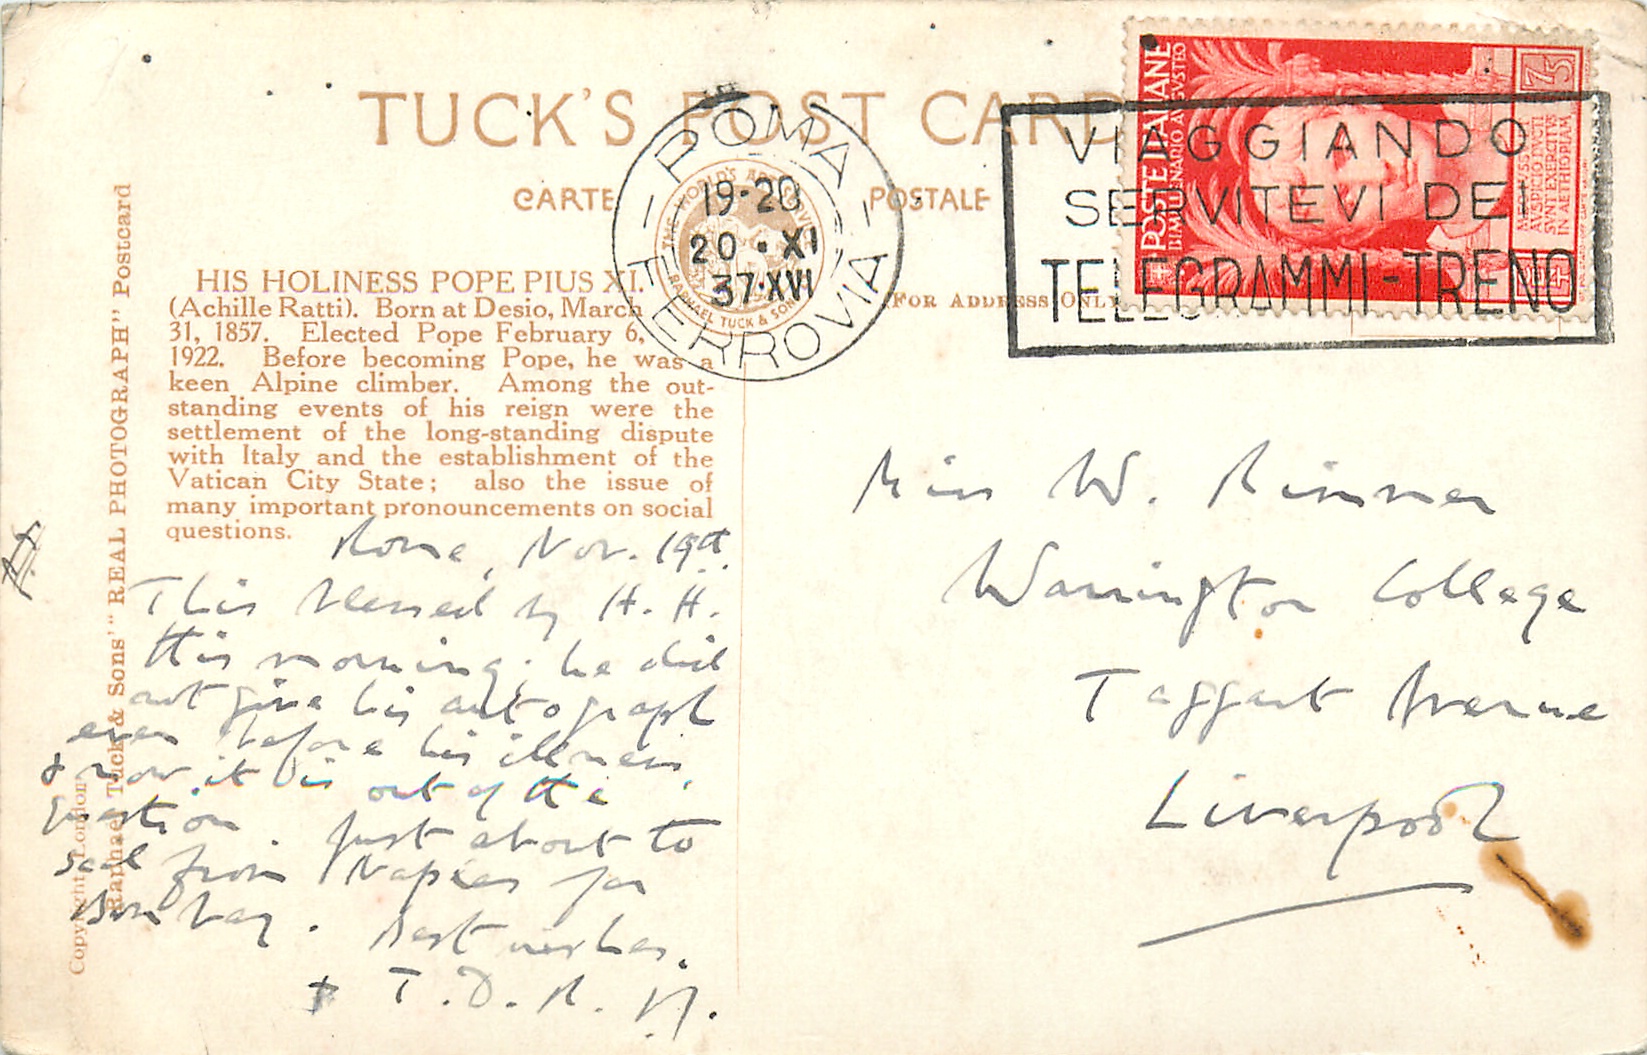 TUCK'S POST CARD
CARTE POSTALE
HIS HOLINESS POPE PIUS XI.
(Achille Ratti). Born at Desio, March
31, 1857. Elected Pope February 6,
1922. Before becoming Pope, he was a
keen Alpine climber. Among the out-
standing events of his reign were the
settlement of the long-standing dispute
with Italy and the establishment of the
Vatican City State; also the issue of
many important pronouncements on social
questions.
Rome, Nov. 19th.
This blessed by H. H.
this morning; he did
not give his autograph
even before his illness,
& now it is out of the
question. Just about to
sail from Naples for
Bombay. Best wishes.
+ T. D. R.
Copyright London
Raphael Tuck & Sons' "REAL PHOTOGRAPH" Postcard
THE WORLD'S ART SERVICE
RAPHAEL TUCK & SONS
ROMA
19-20
20 • XI
37•XVI
FERROVIA
FOR ADDRESS ONLY
VIAGGIANDO
SERVITEVI DEI
TELEGRAMMI-TRENO
POSTE ITALIANE
BIMILLENARIO AVGVSTEO
75
IVSSV
AVSPICIO DVCTI
SVNT EXERCITVS
IN AETHIOPIAM
Miss W. Rimmer
Warrington College
Taggart Avenue
Liverpool